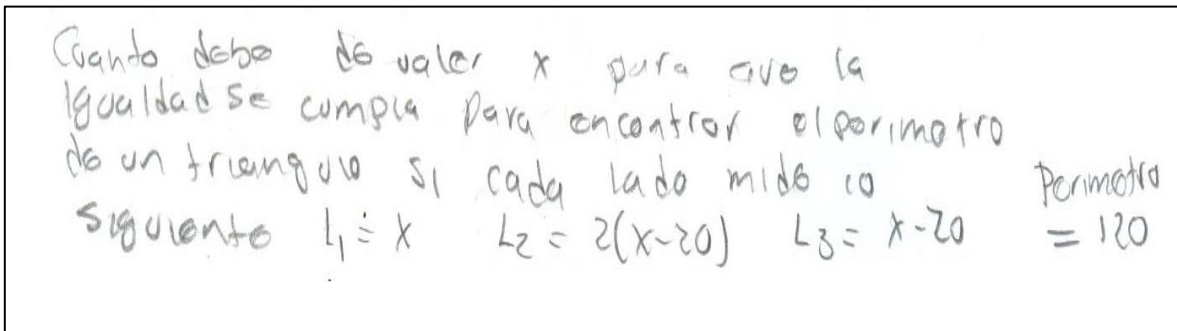 Cuanto debe de valer x para que la
igualdad se cumpla para encontrar el perimetro
de un triangulo si cada lado mide lo
siguiente L₁ = x L₂ = 2(x-20) L₃ = x-20 Perimetro = 120